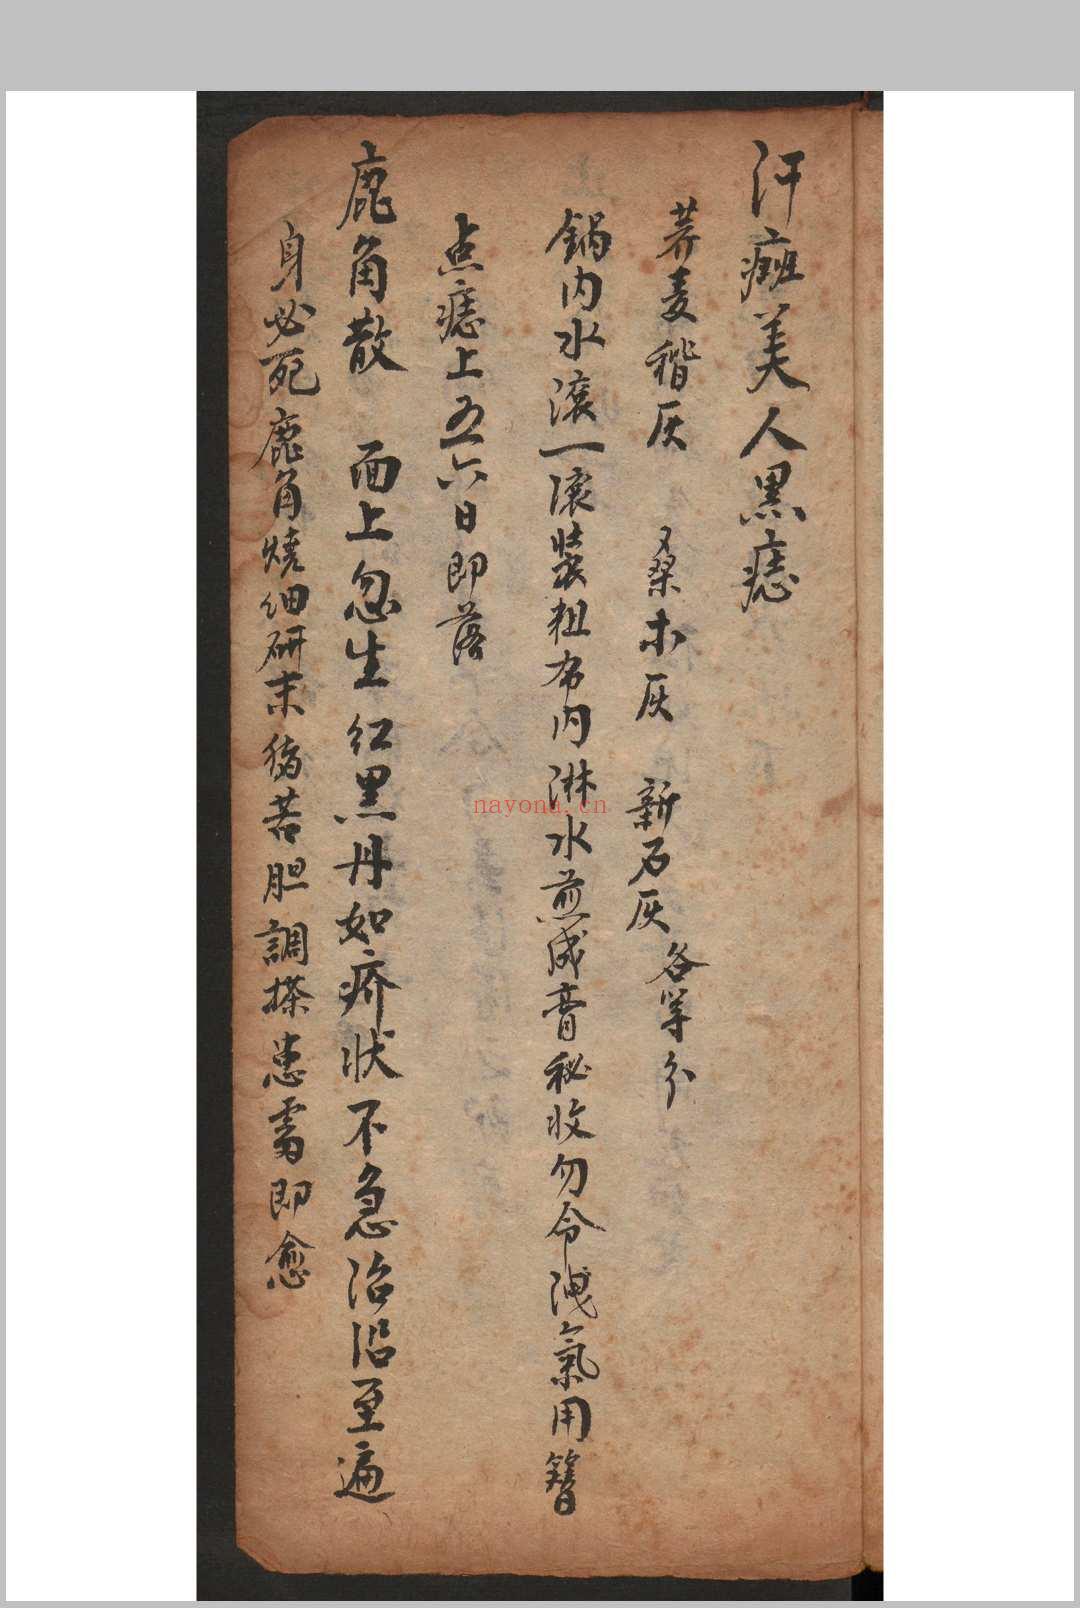 汗癍美人黑痣
荞麦稭灰 桑木灰 新石灰 各等分
锅内水滚一滚装粗布内淋水煎成膏秘收勿令洩氣用簪
点痣上五六日即落
鹿角散 面上忽生红黑丹如疥状不急治沿至遍
身必死鹿角燒细研末猪苦胆調搽患處即愈
nayona.cn